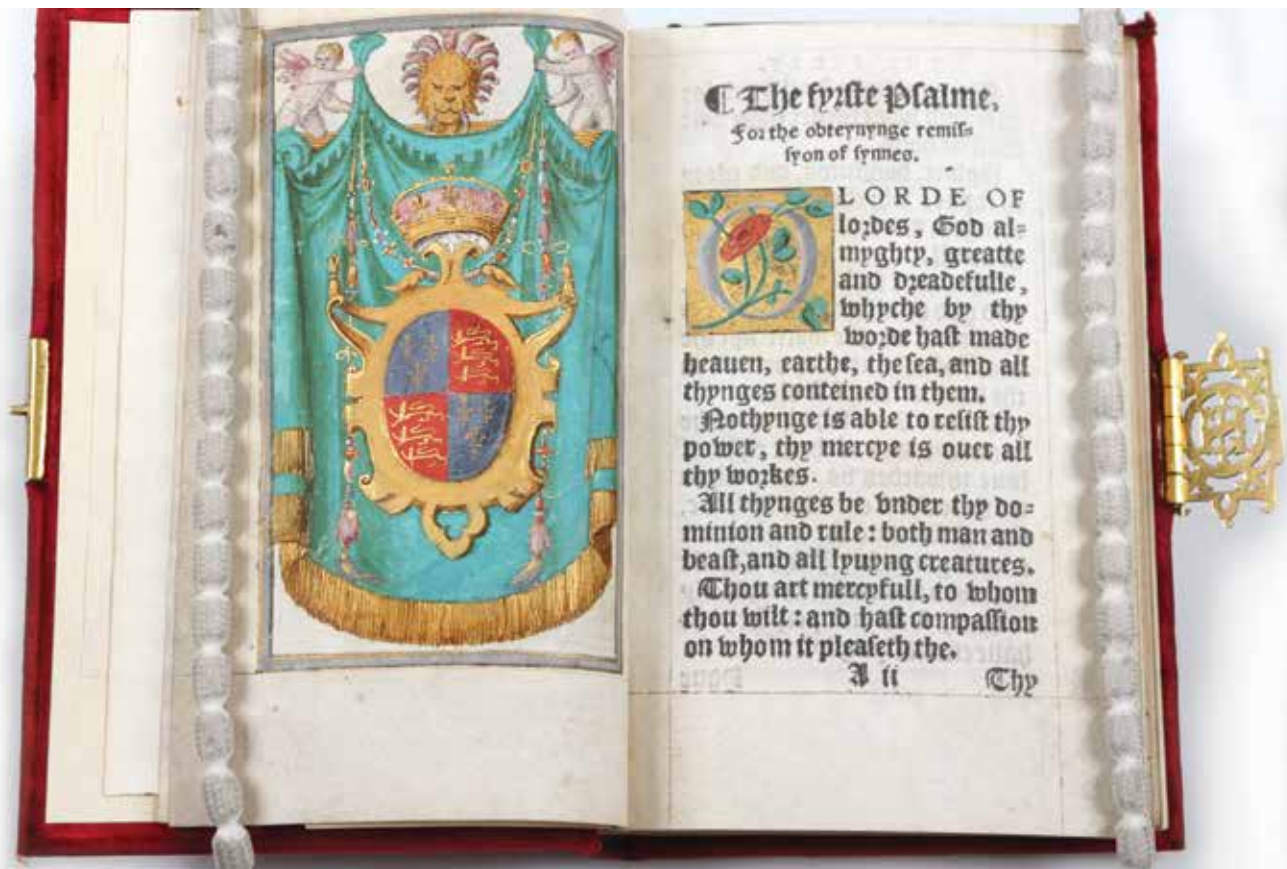 ¶ The fyrste Psalme,
For the obteynynge remis-
syon of synnes.
O LORDE OF
lordes, God al=
myghty, greatte
and dreadefulle,
whyche by thy
worde hast made
heauen, earthe, the sea, and all
thynges conteined in them.
Nothynge is able to resist thy
power, thy mercye is ouer all
thy workes.
All thynges be vnder thy do=
minion and rule: both man and
beast, and all lyuyng creatures.
Thou art mercyfull, to whom
thou wilt: and hast compassion
on whom it pleaseth the.
A ii Thy